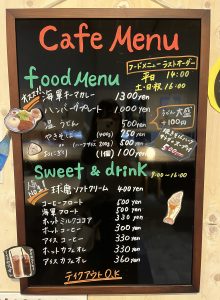 Cafe Menu
フードメニューラストオーダー
平日 14:00
土・日・祝 16:00
food Menu
オススメ!! 海軍キーマカレー 1300yen
ハンバーグプレート 1000 yen
うどん 500yen
うどん大盛 +100円
やきそば (400g) 250 yen
(200g) 500 yen
おにぎり (1個) 100 yen
Sweet & drink
9:00~16:00
球磨ソフトクリーム 400 yen
コーヒーフロート 500 yen
海軍フロート 500 yen
ホットミルクココア 330 yen
ホットコーヒー 300 yen
アイスコーヒー 330 yen
ホットカフェオレ 330 yen
アイスカフェオレ 360 yen
テイクアウトO.K